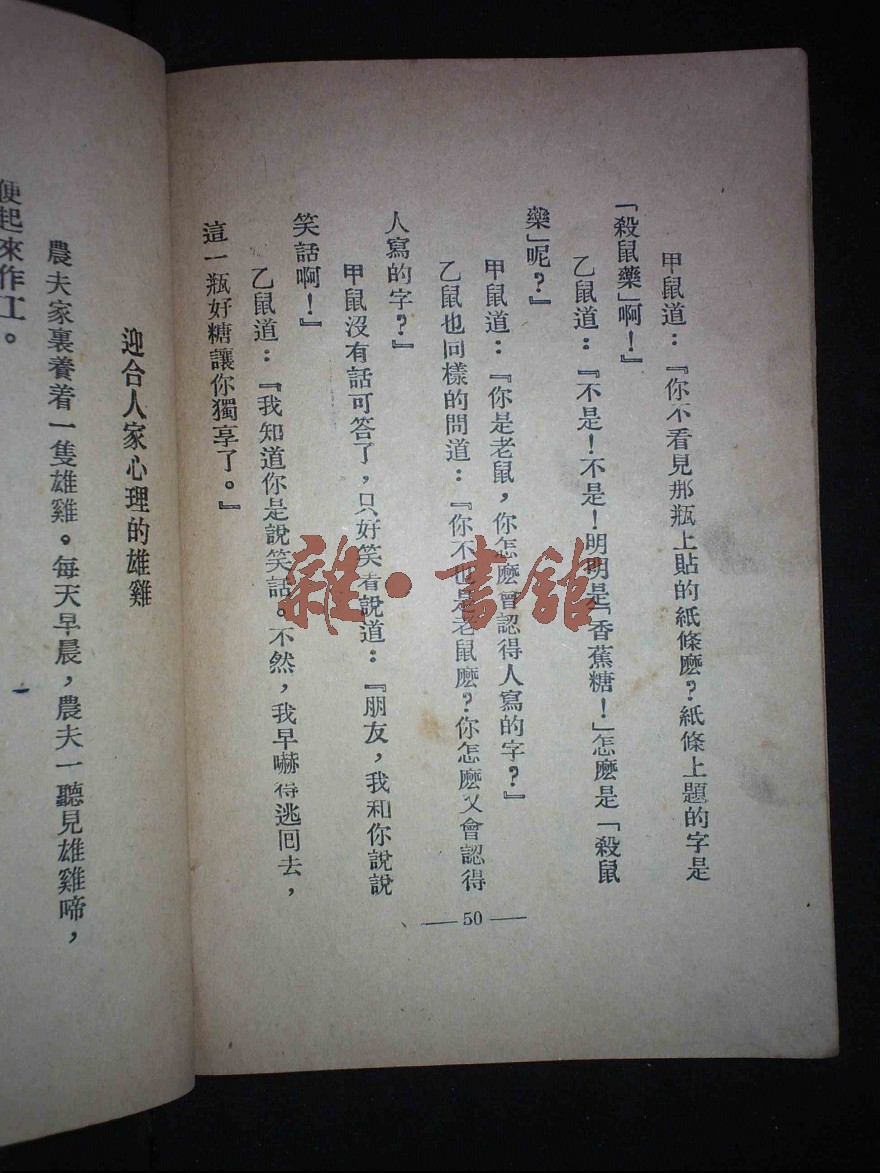 甲鼠道：『你不看見那瓶上貼的紙條麽？紙條上題的字是
「殺鼠藥」啊！』
乙鼠道：『不是！不是！明明是「香蕉糖！」怎麽是「殺鼠
藥」呢？』
甲鼠道：『你是老鼠，你怎麽會認得人寫的字？』
乙鼠也同樣的問道：『你不也是老鼠麽？你怎麽又會認得
人寫的字？』
甲鼠沒有話可答了，只好笑着說道：『朋友，我和你說說
笑話啊！』
乙鼠道：『我知道你是說笑話。不然，我早嚇得逃回去，
這一瓶好糖讓你獨享了。』
— 50 —
迎合人家心理的雄雞
農夫家裏養着一隻雄雞。每天早晨，農夫一聽見雄雞啼，
便起來作工。
雜·書館